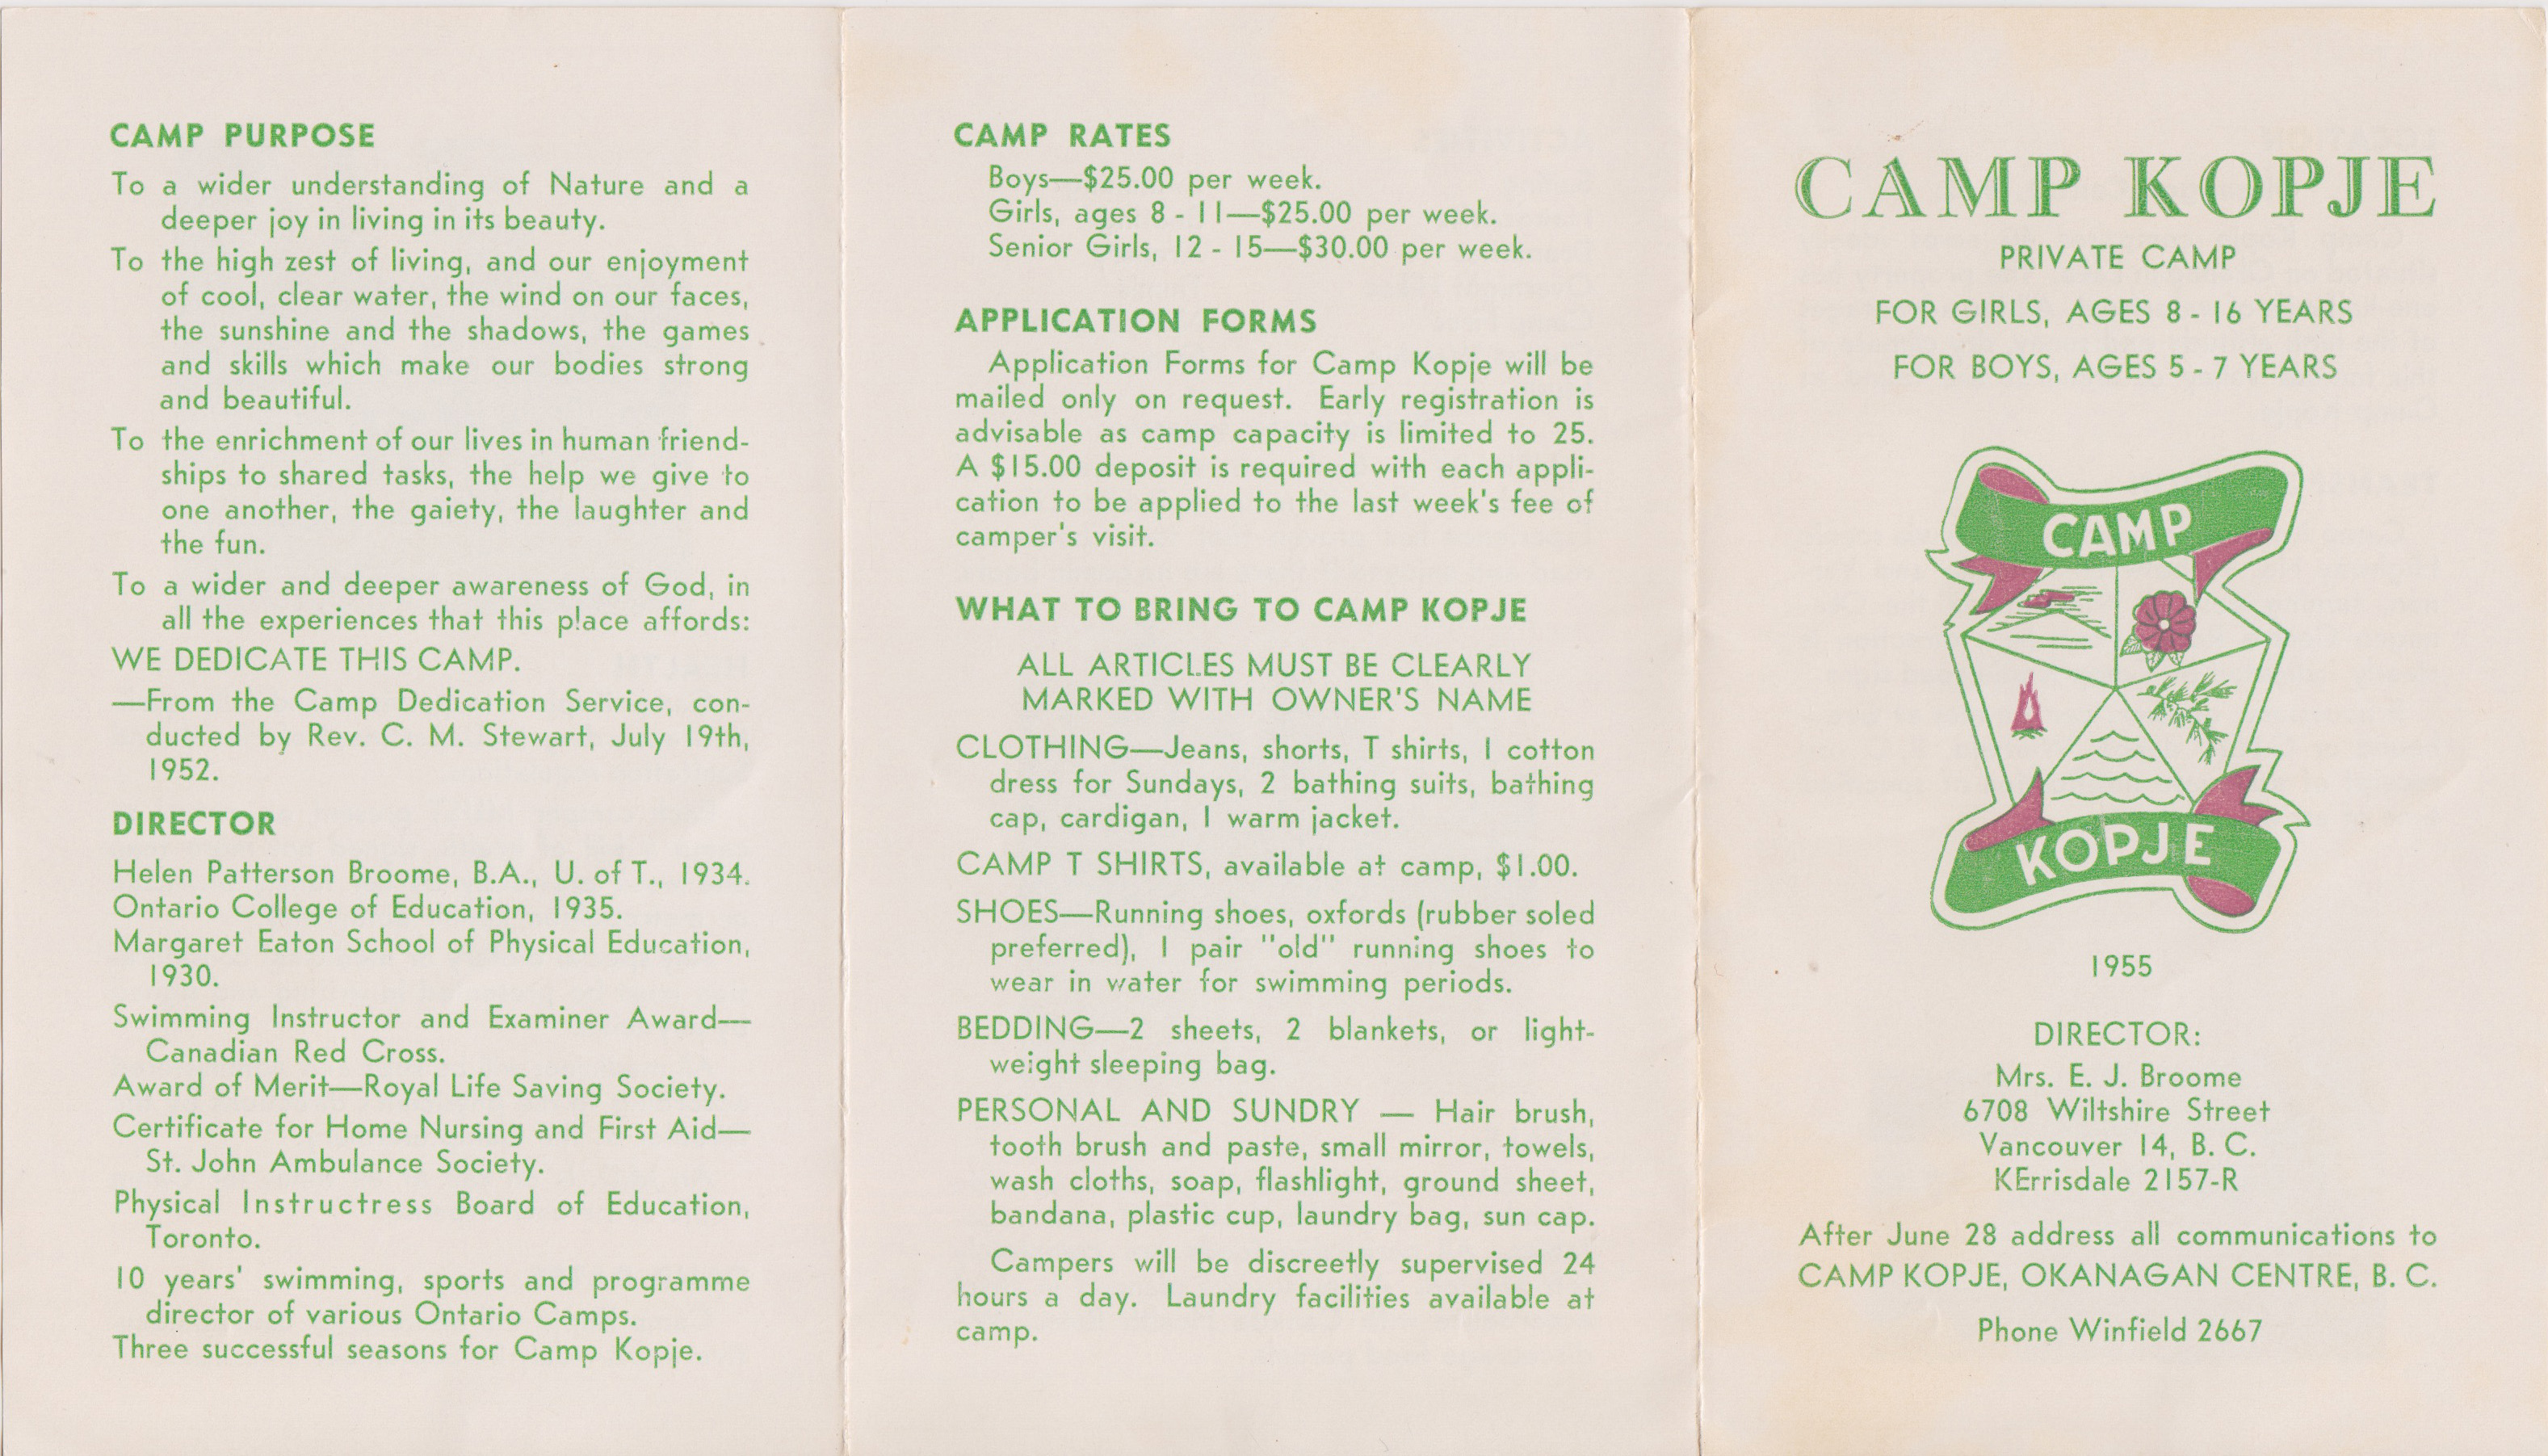 CAMP PURPOSE
To a wider understanding of Nature and a
deeper joy in living in its beauty.
To the high zest of living, and our enjoyment
of cool, clear water, the wind on our faces,
the sunshine and the shadows, the games
and skills which make our bodies strong
and beautiful.
To the enrichment of our lives in human friend-
ships to shared tasks, the help we give to
one another, the gaiety, the laughter and
the fun.
To a wider and deeper awareness of God, in
all the experiences that this place affords:
WE DEDICATE THIS CAMP.
—From the Camp Dedication Service, con-
ducted by Rev. C. M. Stewart, July 19th,
1952.
DIRECTOR
Helen Patterson Broome, B.A., U. of T., 1934.
Ontario College of Education, 1935.
Margaret Eaton School of Physical Education,
1930.
Swimming Instructor and Examiner Award—
Canadian Red Cross.
Award of Merit—Royal Life Saving Society.
Certificate for Home Nursing and First Aid—
St. John Ambulance Society.
Physical Instructress Board of Education,
Toronto.
10 years' swimming, sports and programme
director of various Ontario Camps.
Three successful seasons for Camp Kopje.
CAMP RATES
Boys—$25.00 per week.
Girls, ages 8 - 11—$25.00 per week.
Senior Girls, 12 - 15—$30.00 per week.
APPLICATION FORMS
Application Forms for Camp Kopje will be
mailed only on request. Early registration is
advisable as camp capacity is limited to 25.
A $15.00 deposit is required with each appli-
cation to be applied to the last week's fee of
camper's visit.
WHAT TO BRING TO CAMP KOPJE
ALL ARTICLES MUST BE CLEARLY
MARKED WITH OWNER'S NAME
CLOTHING—Jeans, shorts, T shirts, 1 cotton
dress for Sundays, 2 bathing suits, bathing
cap, cardigan, 1 warm jacket.
CAMP T SHIRTS, available at camp, $1.00.
SHOES—Running shoes, oxfords (rubber soled
preferred), 1 pair "old" running shoes to
wear in water for swimming periods.
BEDDING—2 sheets, 2 blankets, or light-
weight sleeping bag.
PERSONAL AND SUNDRY — Hair brush,
tooth brush and paste, small mirror, towels,
wash cloths, soap, flashlight, ground sheet,
bandana, plastic cup, laundry bag, sun cap.
Campers will be discreetly supervised 24
hours a day. Laundry facilities available at
camp.
CAMP KOPJE
PRIVATE CAMP
FOR GIRLS, AGES 8 - 16 YEARS
FOR BOYS, AGES 5 - 7 YEARS
CAMP
KOPJE
1955
DIRECTOR:
Mrs. E. J. Broome
6708 Wiltshire Street
Vancouver 14, B. C.
KErrisdale 2157-R
After June 28 address all communications to
CAMP KOPJE, OKANAGAN CENTRE, B. C.
Phone Winfield 2667